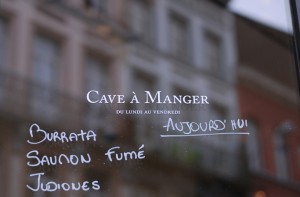 CAVE À MANGER
DU LUNDI AU VENDREDI
AUJOURD'HUI
BURRATA
SAUMON FUMÉ